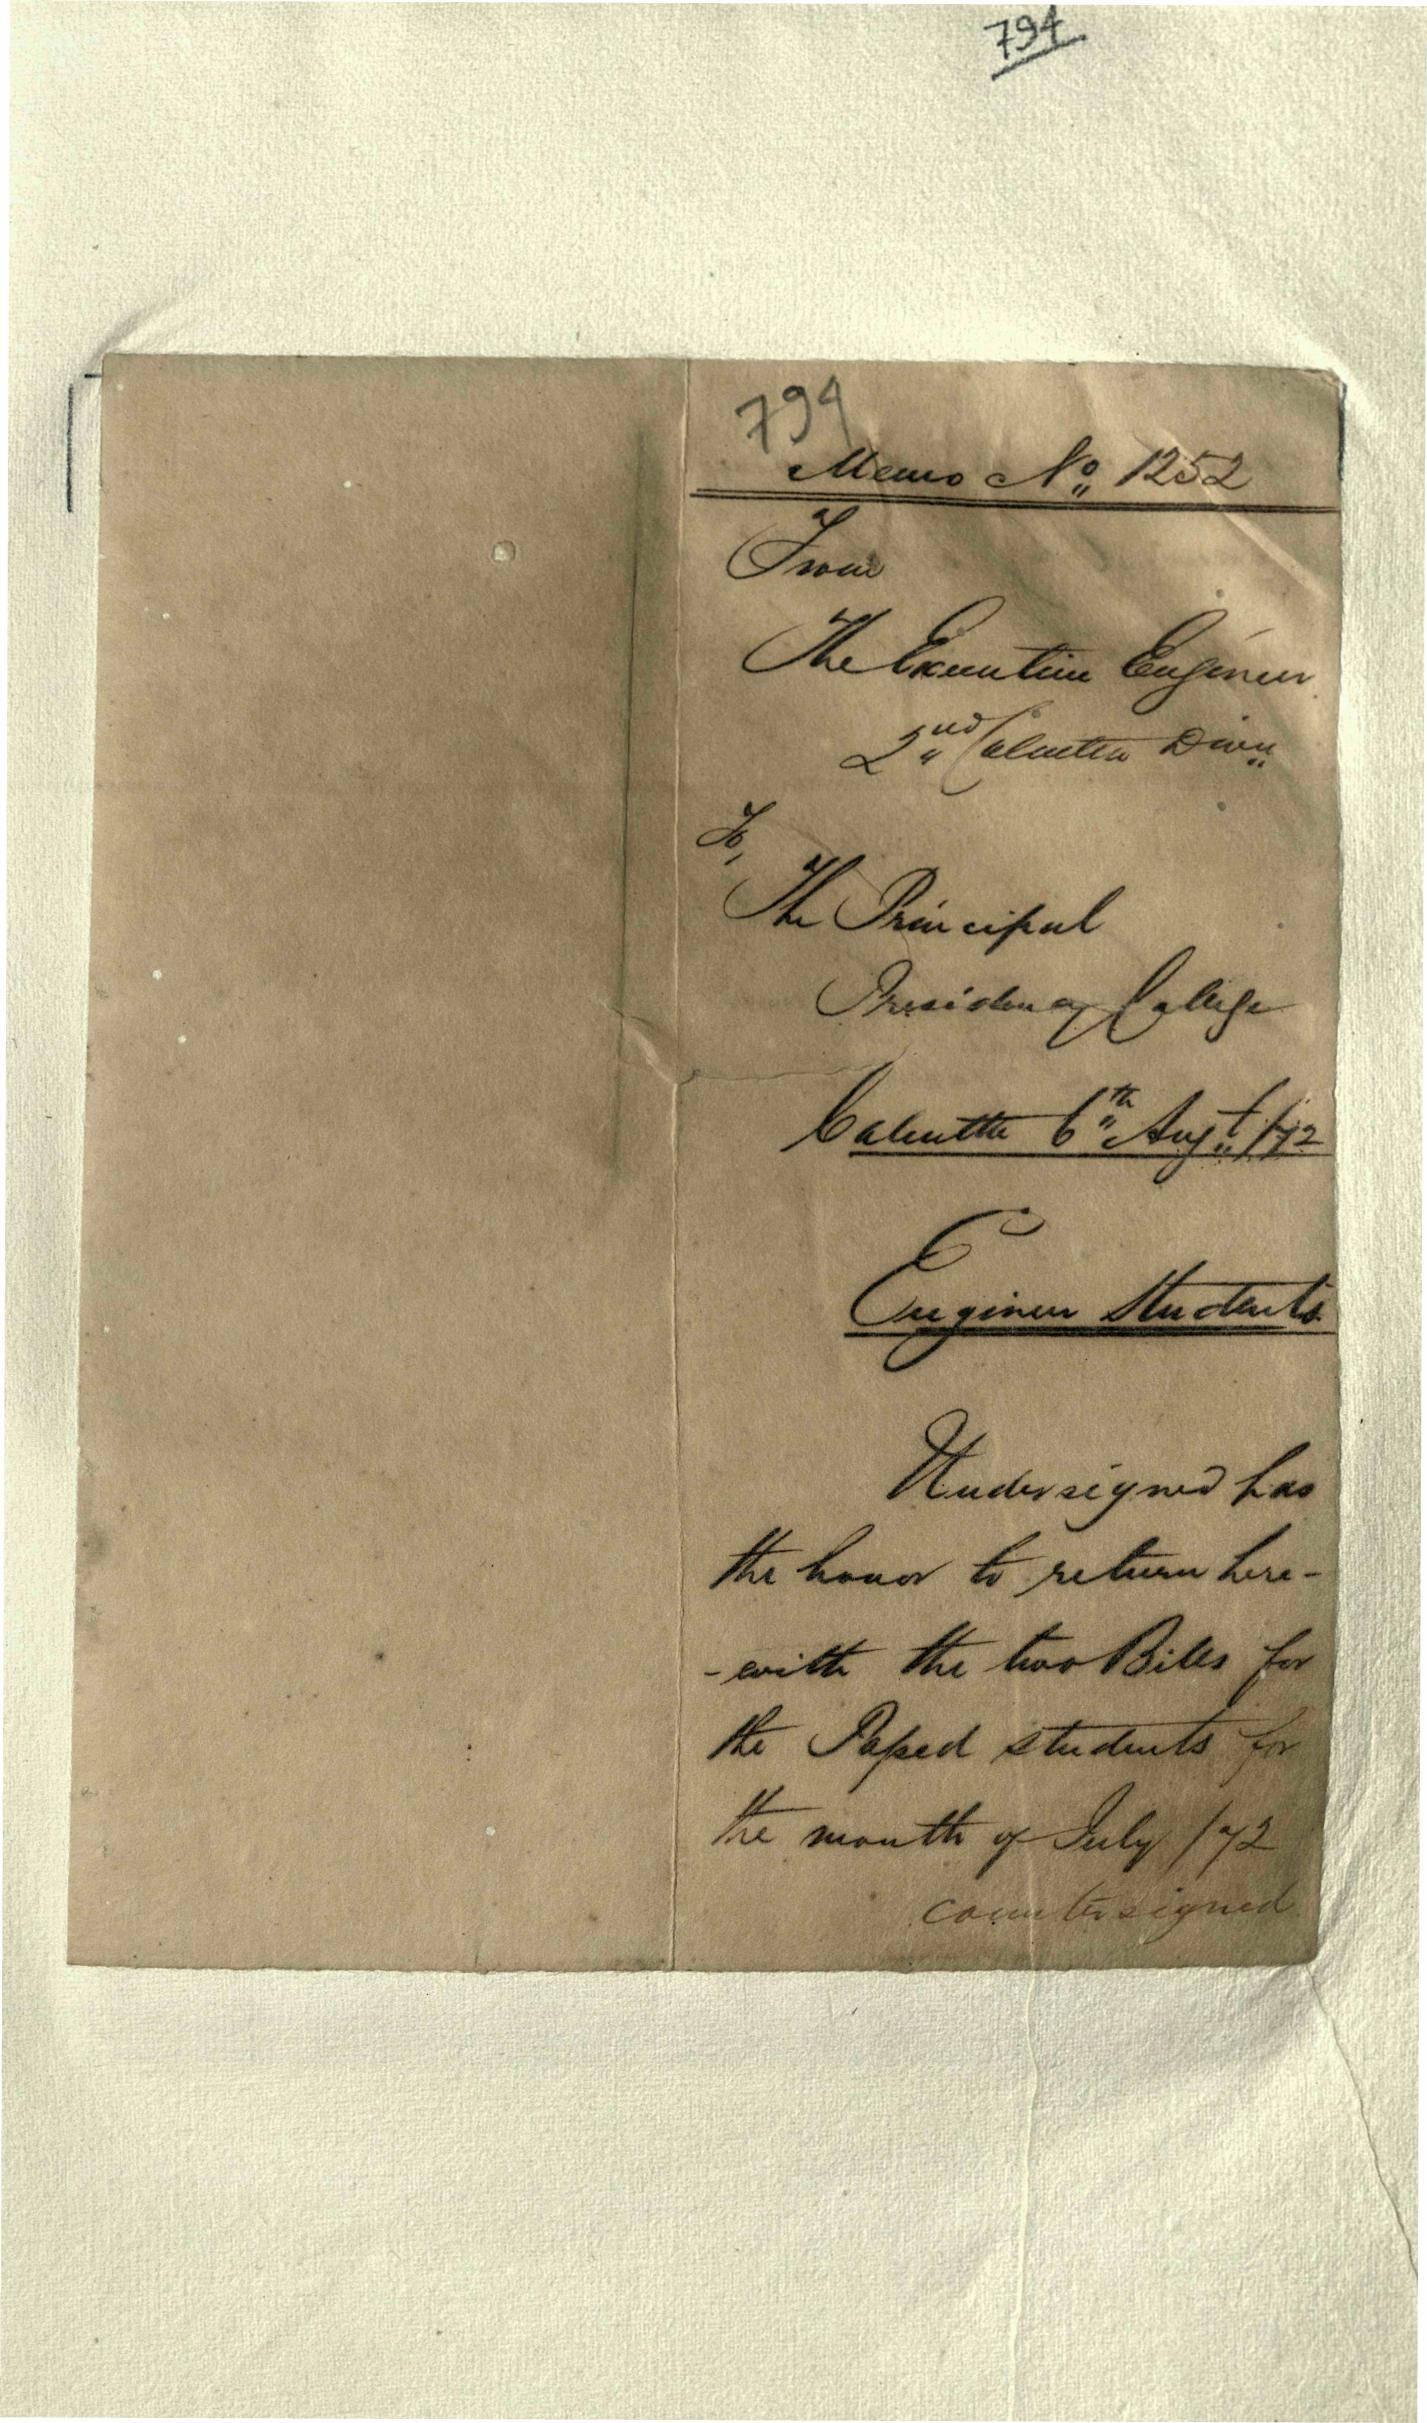 794
794
Memo No. 1252
From
The Executive Engineer
2nd Calcutta Divn.
To,
The Principal
Presidency College
Calcutta 6th Augt. /72
Engineer Students
Undersigned has
the honor to return here-
-with the two Bills for
the Passed students for
the month of July /72
countersigned